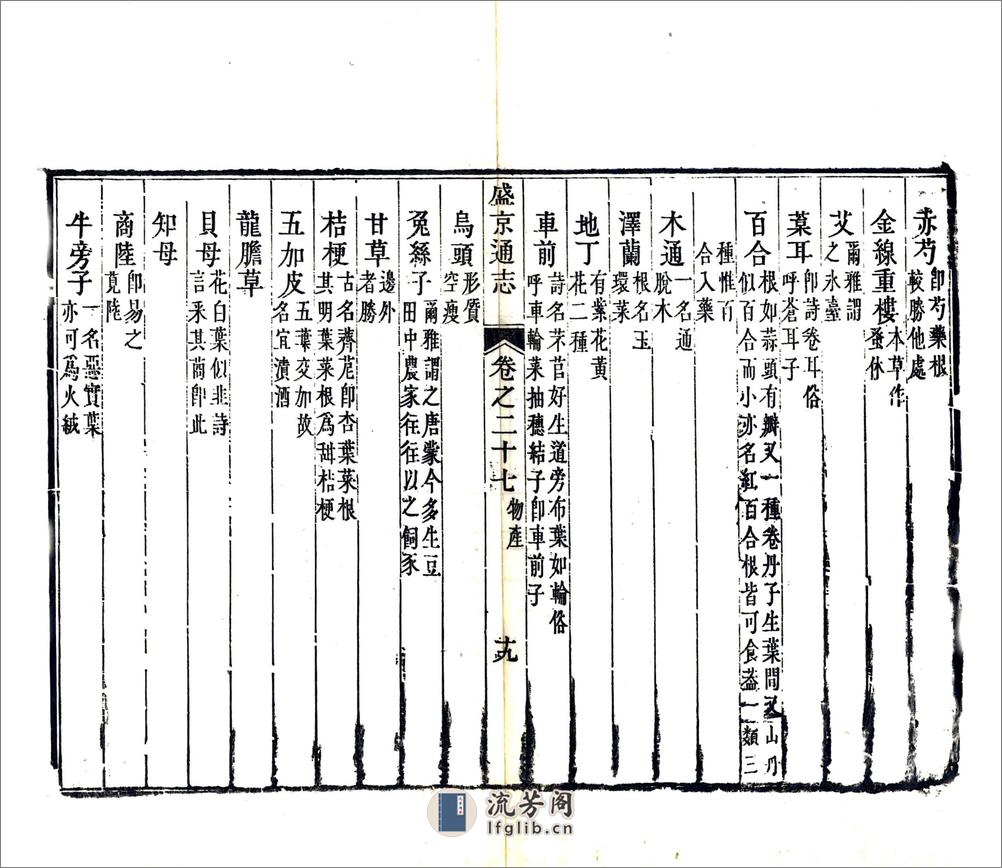 赤芍 即芍藥根較勝他處
金線重樓 本草作蚤休
艾 爾雅謂之氷臺
葈耳 即詩卷耳俗呼蒼耳子
百合 根如蒜頭有瓣又一種卷丹子生葉間又山丹似百合而小亦名紅百合根皆可食葢一類三
種惟百合入藥
木通 一名通脫木
澤蘭 根名玉環菜
地丁 有紫花黃花二種
車前 詩名芣苢好生道旁布葉如輪俗呼車輪菜抽穗結子即車前子
盛京通志 卷之二十七 物產 十九
烏頭 形質空瘦
兔絲子 爾雅謂之唐蒙今多生豆田中農家往往以之飼豕
甘草 邊外者勝
桔梗 古名薺苨即杏葉菜根其明葉菜根爲甜桔梗
五加皮 五葉交加故名宜漬酒
龍膽草
貝母 花白葉似韭詩言采其蝱即此
知母
商陸 即易之莧陸
牛旁子 一名惡實葉亦可爲火絨
流芳阁
lfglib.cn